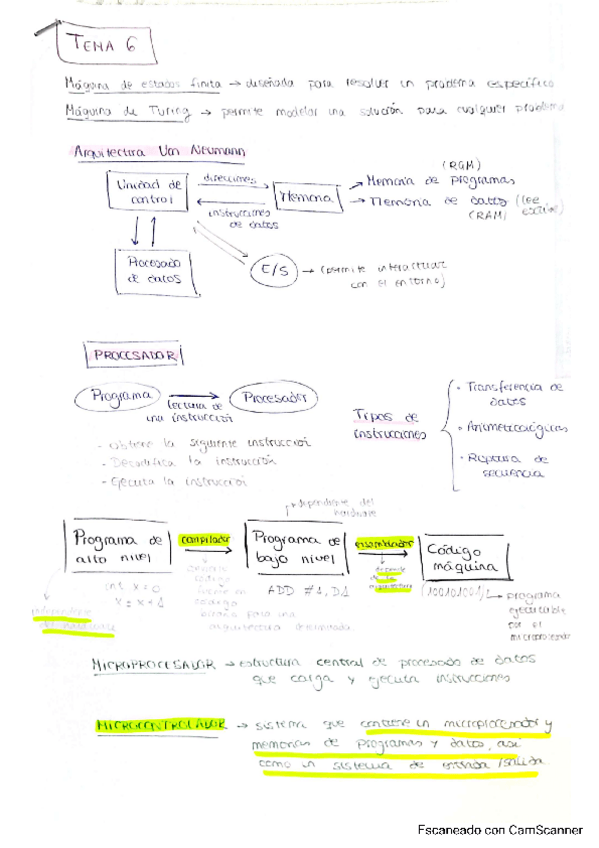 TEMA 6
Máquina de estados finita → diseñada para resolver un problema específico
Máquina de Turing → permite modelar una solución para cualquier problema
Arquitectura Von Neumann
Unidad de control
direcciones
instrucciones de datos
Memoria
(ROM)
→ Memoria de programas
→ Memoria de datos (lee escribe)
(RAM)
Procesado de datos
E/S → (permite interactuar con el entorno)
PROCESADOR
Programa
lectura de una instrucción
Procesador
- Obtiene la siguiente instrucción
- Decodifica la instrucción
- Ejecuta la instrucción
Tipos de instrucciones
· Transferencia de datos
· Aritmeticológicas
· Ruptura de secuencia
dependiente del hardware
Programa de alto nivel
compilador
Programa de bajo nivel
ensamblador
Código máquina
int x = 0
x = x + 1
ADD #1, D1
depende de la arquitectura
(100101001)2
→ programa ejecutable por el microprocesador
para una arquitectura determinada
MICROPROCESADOR → estructura central de procesado de datos
que carga y ejecuta instrucciones
MICROCONTROLADOR → sistema que contiene un microprocesador y
memorias de programas y datos, así
como un sistema de entrada/salida.
Escaneado con CamScanner